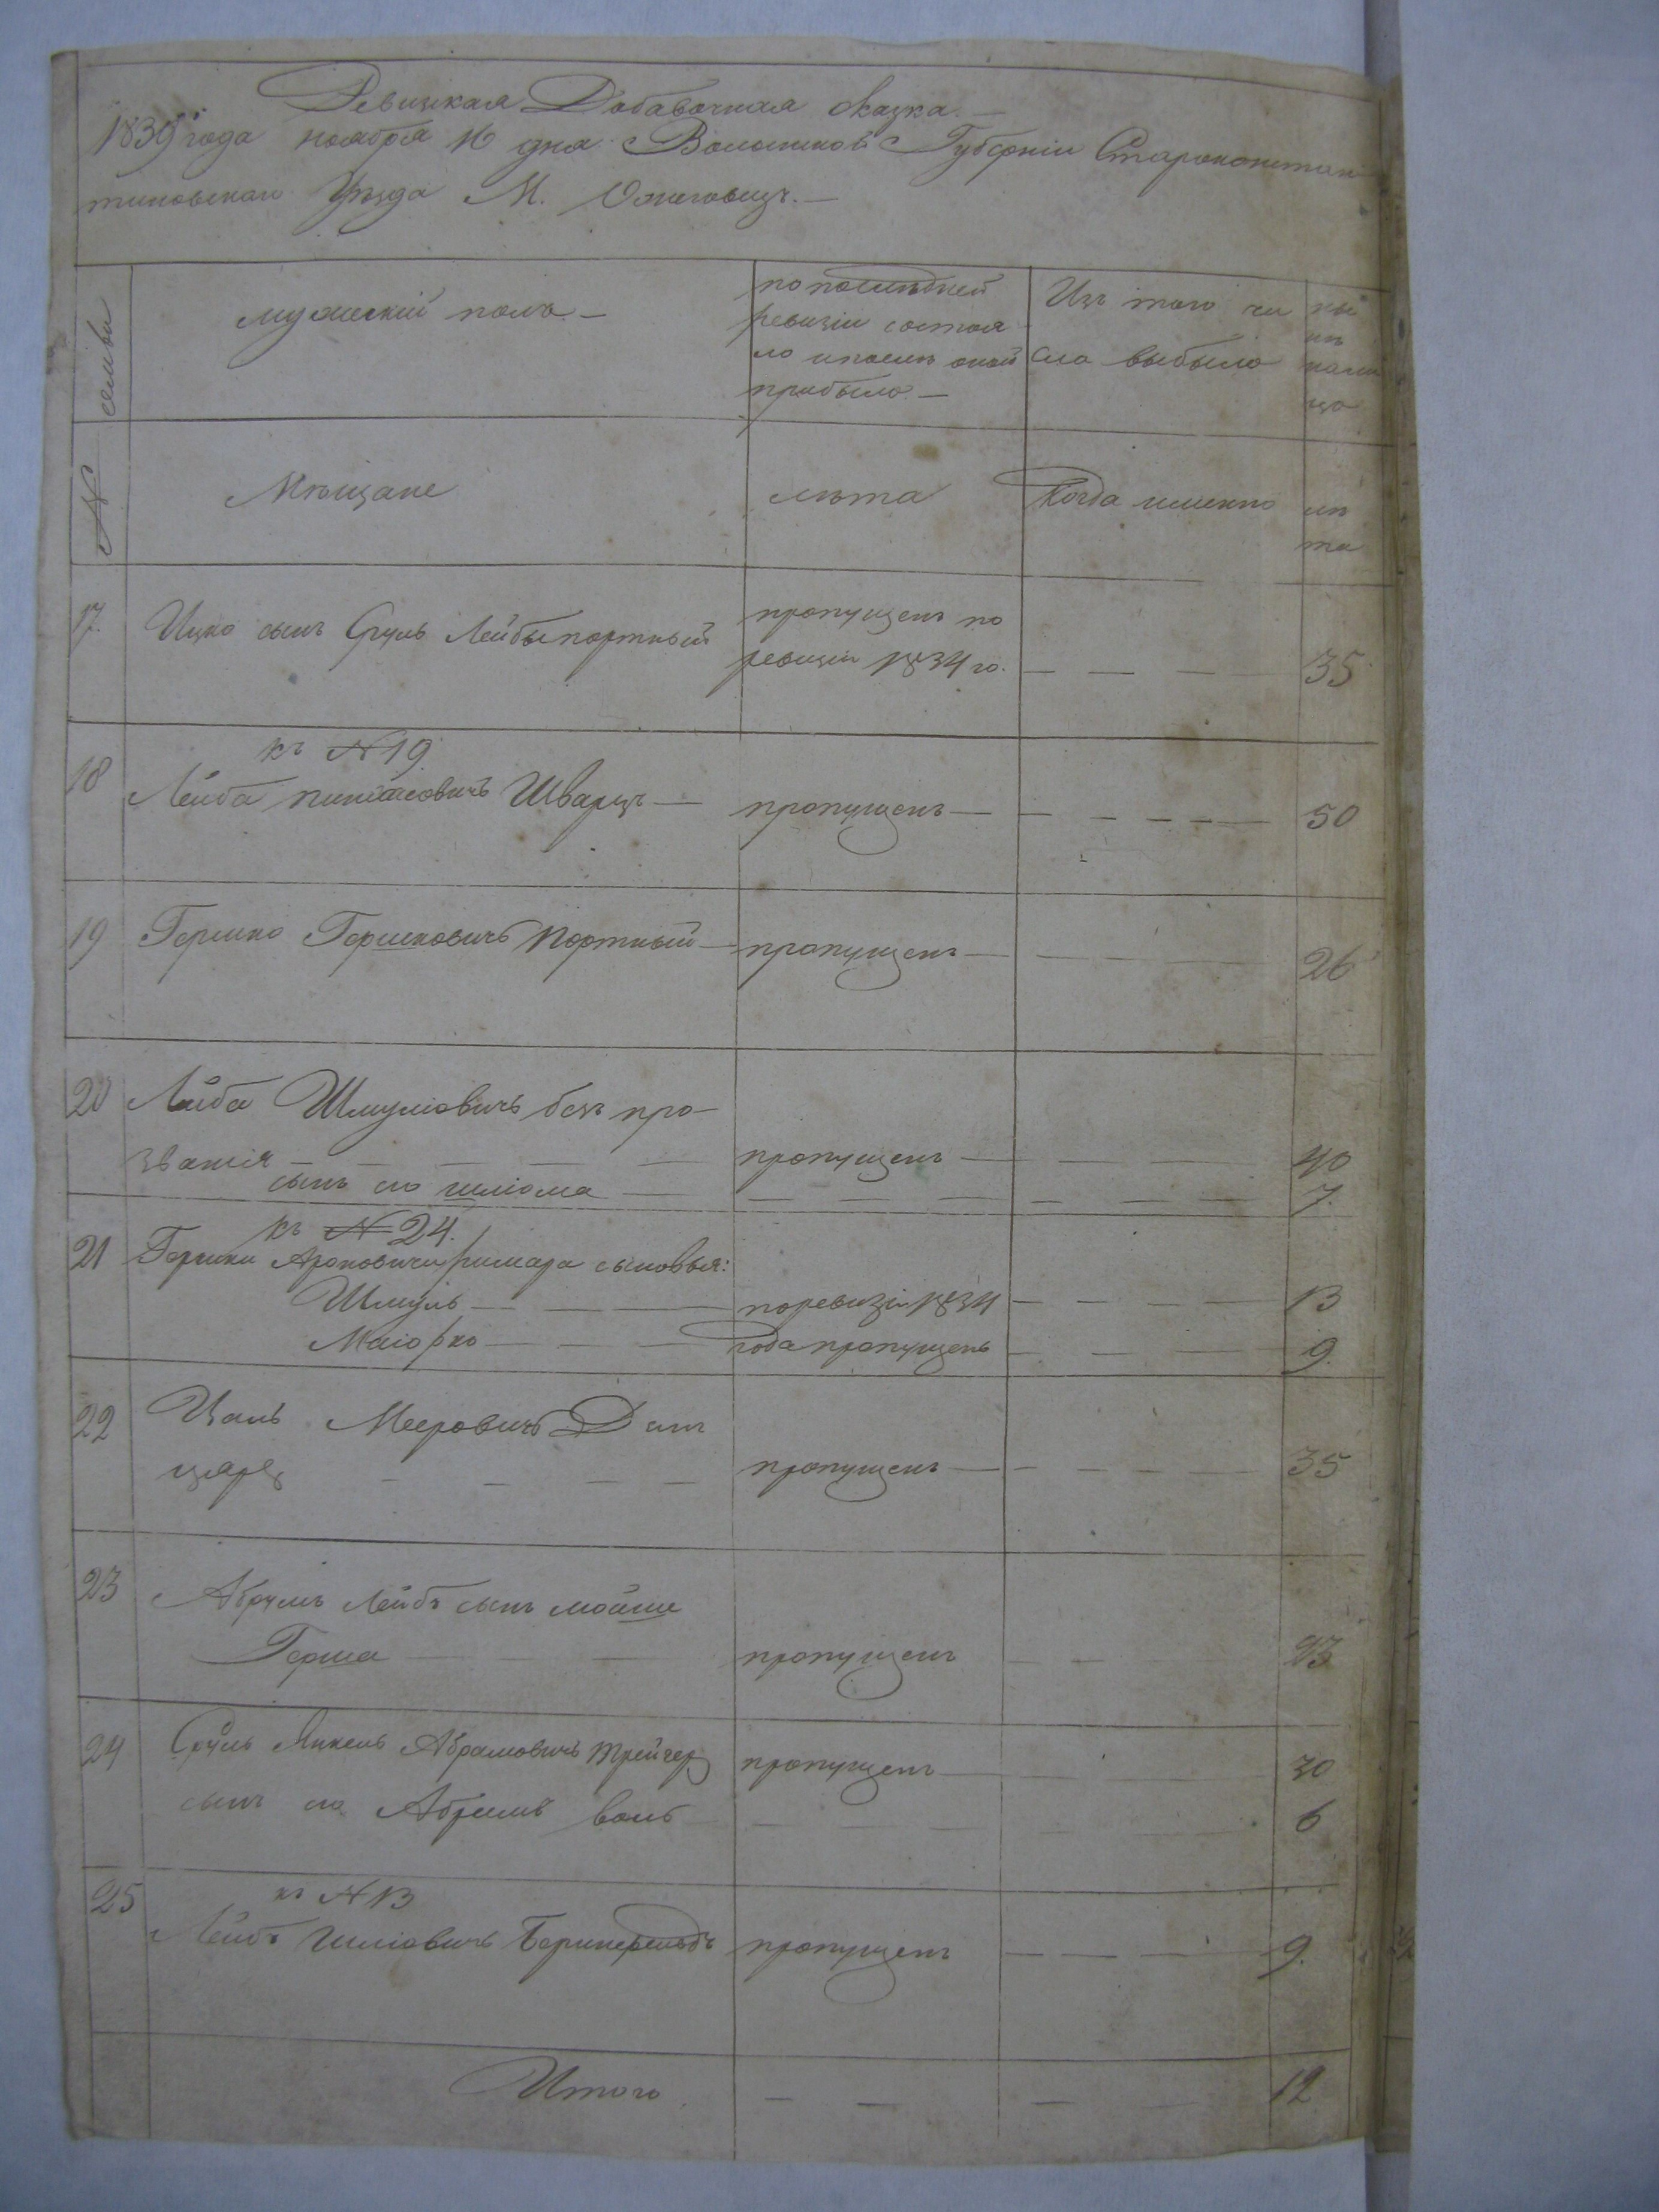 Ревизская Добавочная Сказка.—
1839 года ноября 16 дня Волынской Губерніи Староконстан
тиновскаго Уѣзда М. Ожеговцъ.—
№ семьи
мужескій полъ.—
по послѣдней
ревизіи состоя
ло и послѣ оной
прибыло.—
Изъ того чи
сла выбыло
ны
нѣ
нали
цо
Мѣщане
лѣта
Когда именно
лѣ
та
17. Ицко сынъ Сруль Лейбы портный
пропущенъ по
ревизіи 1834 го. — — — 35
къ № 19.
18 Лейба Пинхасовичъ Шварцъ — пропущенъ — — — — 50
19 Гершко Гершковичъ Портный — пропущенъ — — — 26
20 Лейба Шмуліовичъ безъ про-
званія — — — — пропущенъ — — — 40
сынъ его Шліома — — — — — — 7.
къ № 24.
21 Гершки Ароновичи римара сыновья:
Шмуль — — — по ревизіи 1834 — — — 13
Маіорко — — — года пропущенъ — — — 9.
22 Цаль Мееровичъ
— — — — пропущенъ — — — — 35
23 Абрумъ Лейбъ сынъ Мойше
Герша — — пропущенъ — — — 23
24 Сруль Янкель Абрамовичъ Трейгер пропущенъ — — — 30
сынъ его Абрумъ — — — — — 6
къ № 13
25 Лейбъ Шліовичъ пропущенъ — — — 9.
Итого — — — — 12